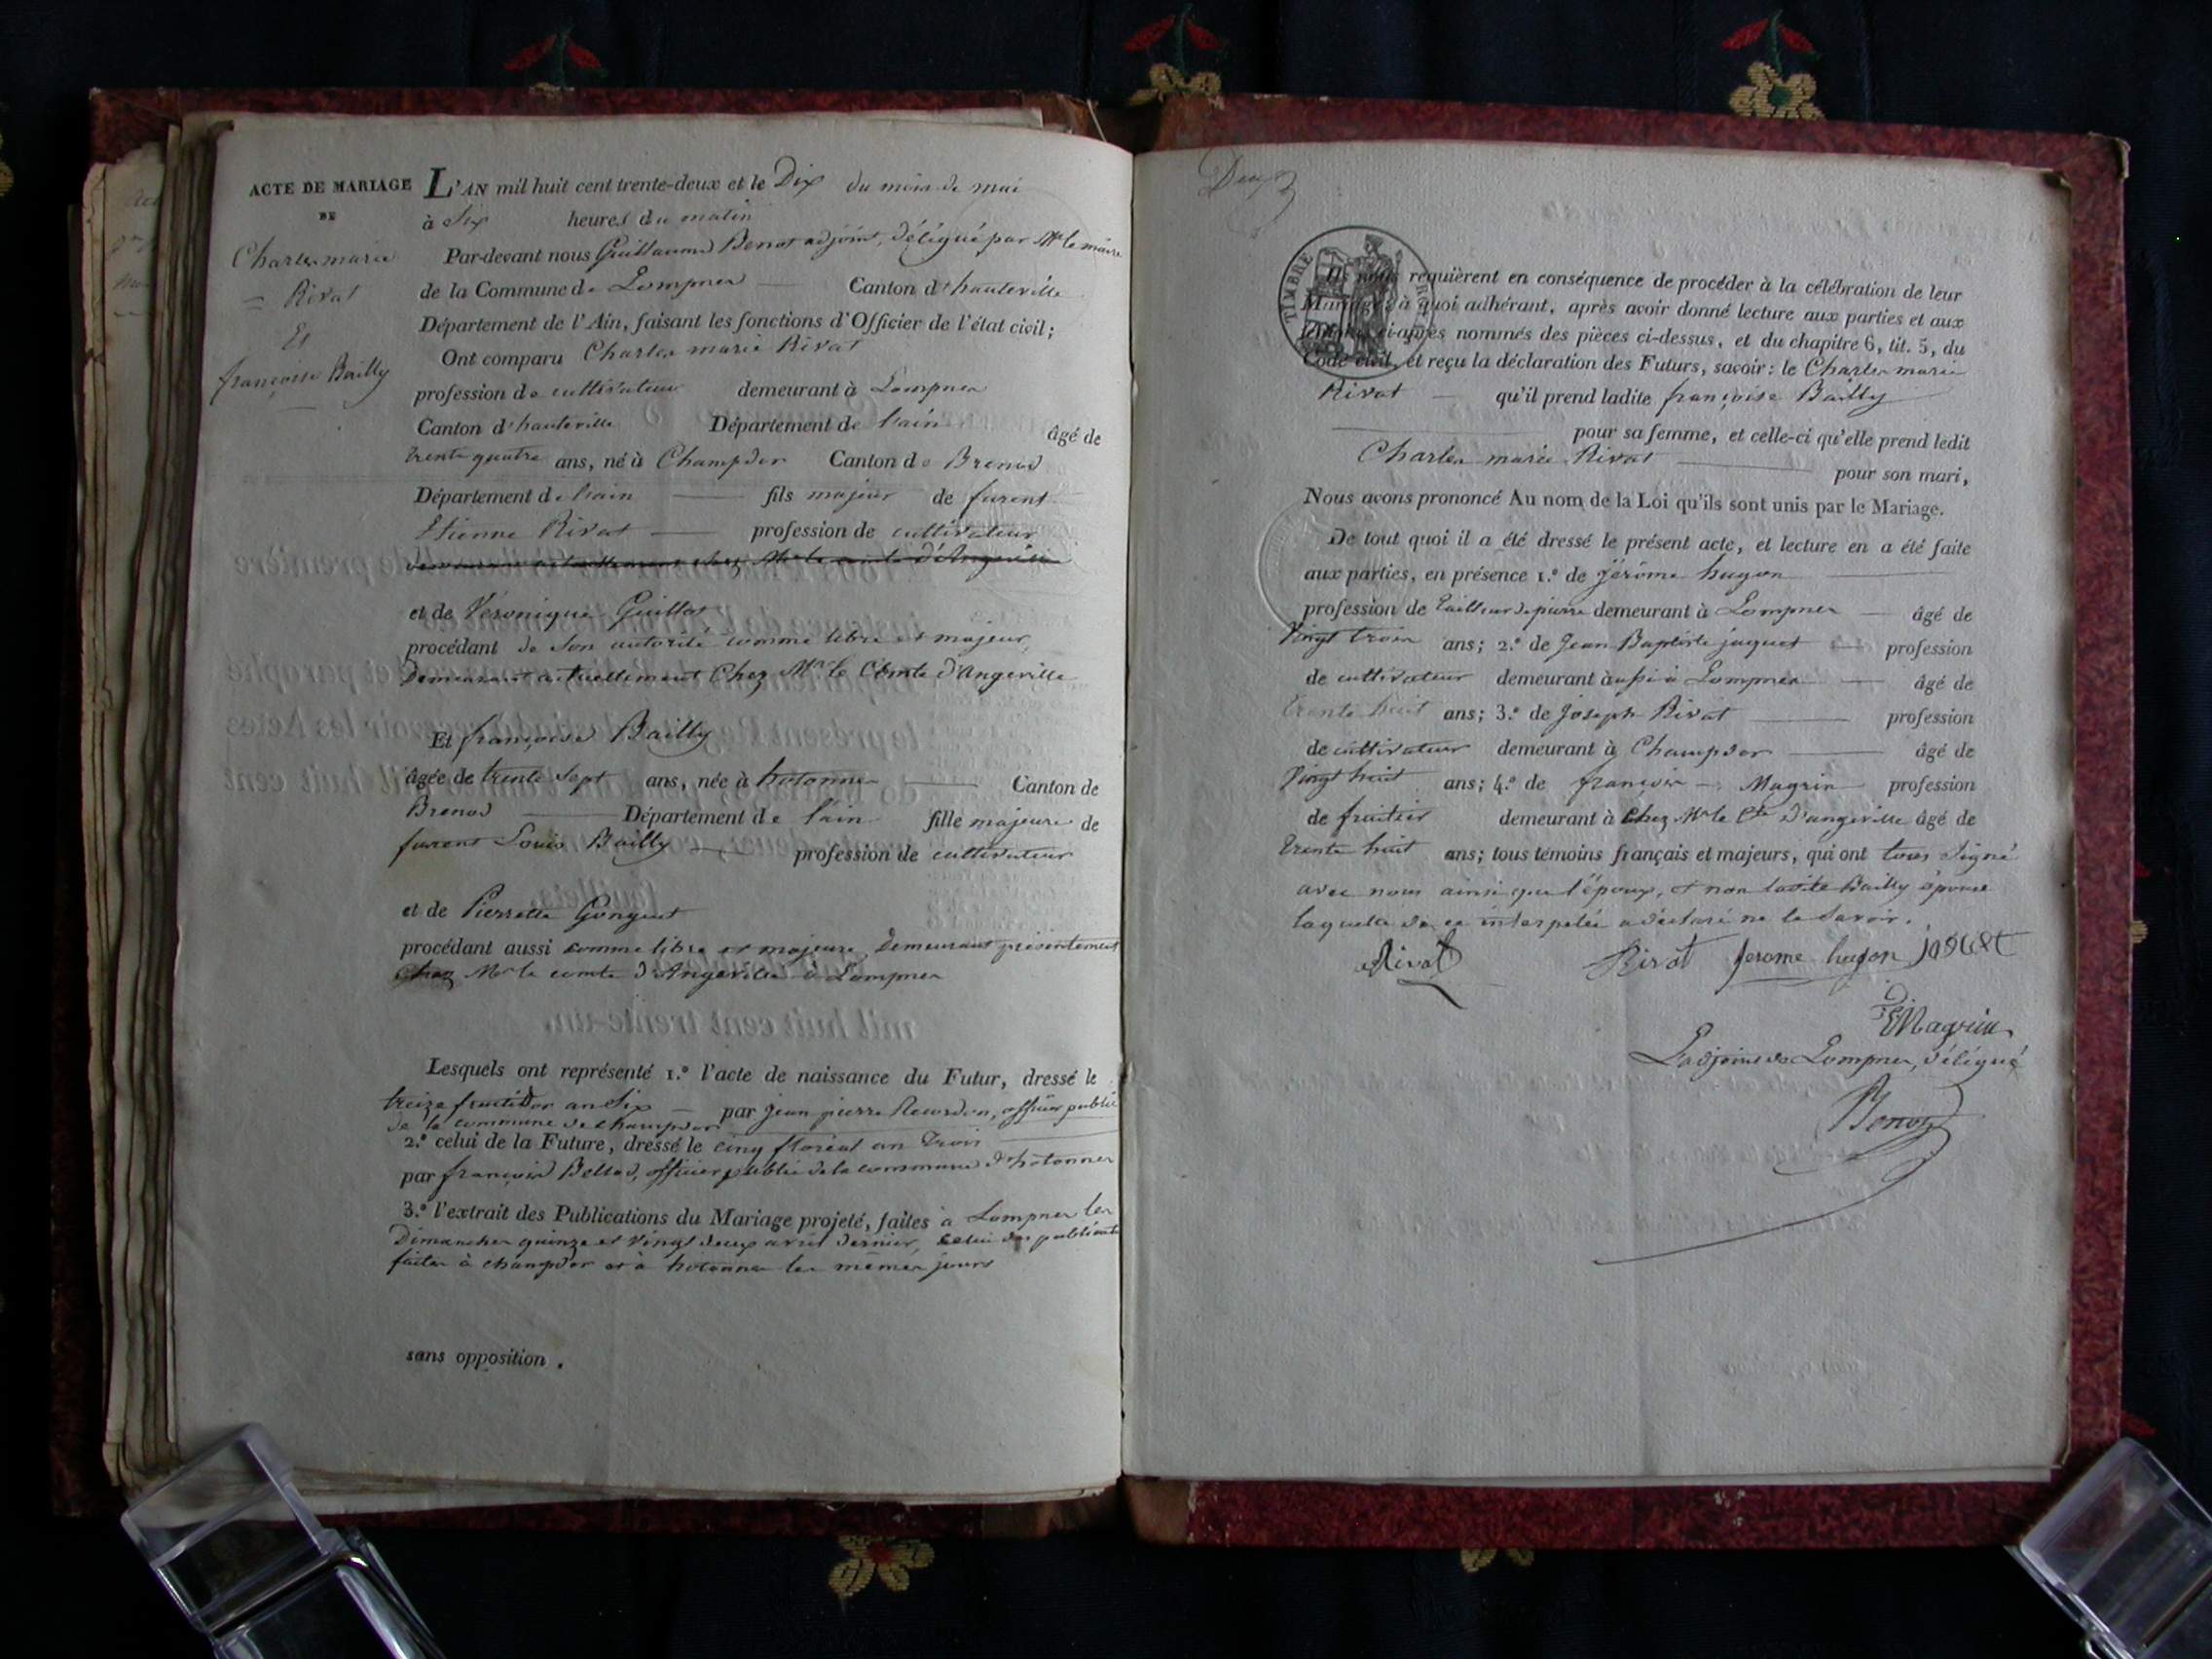 ACTE DE MARIAGE
DE
Charles marie
Rivat
Et
françoise Bailly
L'AN mil huit cent trente-deux et le Dix du mois de mai
à Six heures du matin
Par-devant nous Guillaume Benot adjoint, délégué par Mr le maire
de la Commune de Lompnes Canton d'hauteville
Département de l'Ain, faisant les fonctions d'Officier de l'état civil;
Ont comparu Charles marie Rivat
profession de cultivateur demeurant à Lompnes
Canton d'hauteville Département de l'ain âgé de
trente quatre ans, né à Champdor Canton de Brenod
Département de l'ain fils majeur de furent
Etienne Rivat profession de cultivateur
demeurant actuellement chez Mr le comte d'Angeville
et de Véronique Guillot
procédant de son autorité comme libre et majeur,
Demeurant actuellement Chez Mr le Comte d'Angeville
Et françoise Bailly
âgée de trente Sept ans, née à hotonnes Canton de
Brenod Département de l'ain fille majeure de
furent Louis Bailly profession de cultivateur
et de Pierrette Gonguet
procédant aussi comme libre et majeure, Demeurant présentement
Chez Mr le comte d'Angeville à Lompnes
Lesquels ont représenté 1.º l'acte de naissance du Futur, dressé le
treize fructidor an Six par jean pierre officier public
de la commune de champdor
2.º celui de la Future, dressé le cinq floréal an Trois
par françois Bellod, officier public de la commune d'hotonnes
3.º l'extrait des Publications du Mariage projeté, faites à Lompnes les
Dimanches quinze et vingt deux avril dernier, celui des publications
faites à champdor et à hotonnes les mêmes jours
sans opposition.
Deux
TIMBRE
Ils nous requièrent en conséquence de procéder à la célébration de leur
Mariage; à quoi adhérant, après avoir donné lecture aux parties et aux
témoins ci-après nommés des pièces ci-dessus, et du chapitre 6, tit. 5, du
Code civil, et reçu la déclaration des Futurs, savoir: le Charles marie
Rivat qu'il prend ladite françoise Bailly
pour sa femme, et celle-ci qu'elle prend ledit
Charles marie Rivat pour son mari,
Nous avons prononcé Au nom de la Loi qu'ils sont unis par le Mariage.
De tout quoi il a été dressé le présent acte, et lecture en a été faite
aux parties, en présence 1.º de Jérôme hugon
profession de tailleur de pierre demeurant à Lompnes âgé de
Vingt trois ans; 2.º de Jean Baptiste jaquet profession
de cultivateur demeurant à aussi à Lompnes âgé de
trente huit ans; 3.º de Joseph Rivat profession
de cultivateur demeurant à Champdor âgé de
Vingt huit ans; 4.º de françois Magrin profession
de fruitier demeurant à Chez Mr le Cte d'angeville âgé de
trente huit ans; tous témoins français et majeurs, qui ont tous signé
avec nous ainsi que l'époux, et non ladite Bailly épouse
laquelle de ce interpelée a déclaré ne le savoir.
Rivat Rivat Jerome hugon
Magrin
L'adjoint de Lompnes, délégué
Benot